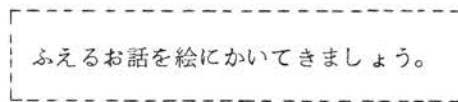 ふえるお話を絵にかいてきましょう。